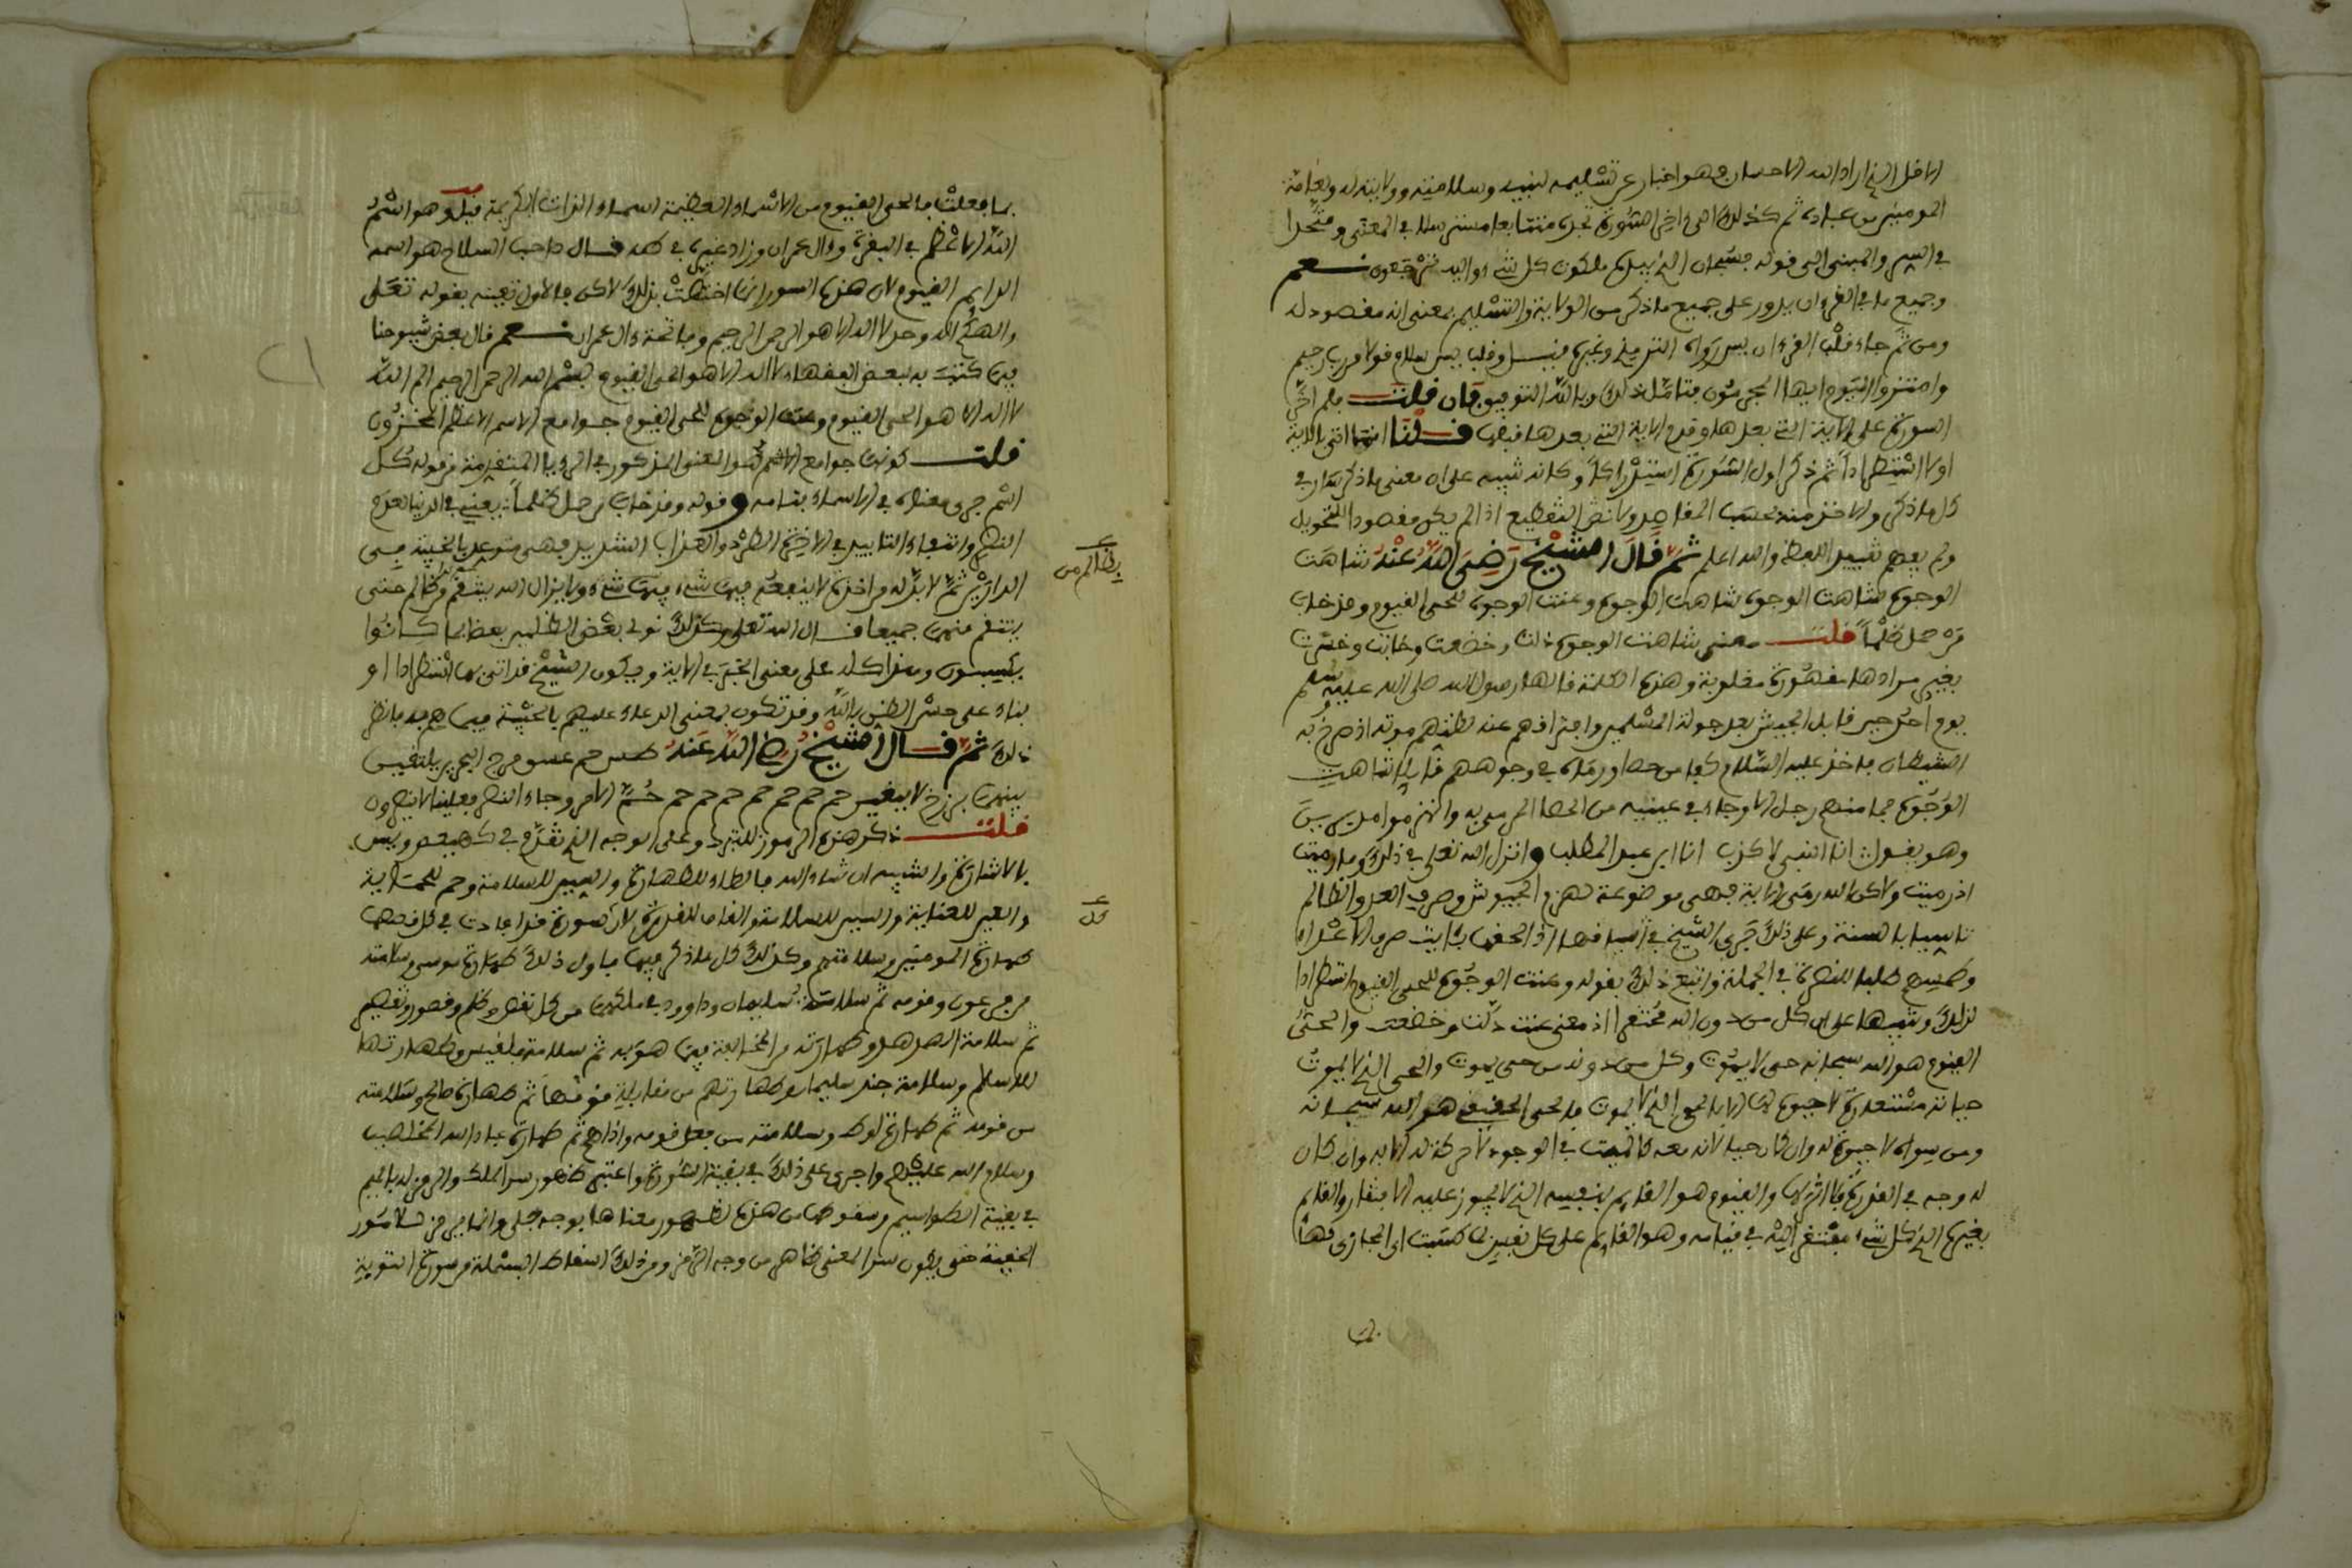 الاقل الذي اراد الله الاحسان وهو اخبار عن تسليمه لنبيه وسلامته وولايته له ولعامة
المومنين من عباده ثم كذلك الى اخر السورة تجده متتابعا مسترسلا في المعنى ومتحدا
في السر والمبنى الى قوله فسبحان الذي بيده ملكوت كل شيء واليه ترجعون نعم
وجميع ما في القرءان يدور على جميع ما ذكر من الولاية والتسليم بمعنى انه مقصود له
ومن ثم جاء قلب القرءان يس رواه الترمذي وغيره وقلب يس سلام قولا من رب رحيم
وامتازوا اليوم ايها المجرمون فتامل ذلك وبالله التوفيق فان قلت فلم اخر
السورة على الاية التي بعدها وقدم الاية التي بعدها قبلها قلنا انما اتى بالاية
اولا استطرادا ثم ذكر اول السورة استدراكا وكانه نبيه على ان معنى ما ذكر سار في
كل ما ذكر والاخذ منه بحسب المقاصد ولا نضر التقطيع اذا لم يكن مقصودا للتحويل
ولم يفهم تغيير اللفظ والله اعلم ثم قال الشيخ رضي الله عنه شاهت
الوجوه شاهت الوجوه شاهت الوجوه وعنت الوجوه للحي القيوم وقد خاب
من حمل ظلما قلت معنى شاهت الوجوه ذلت وخضعت وخابت وخسرت
بغير مرادها مقهورة مغلوبة وهذه الكلمة قالها رسول الله صلى الله عليه وسلم
يوم احد حين قابل الجيش بعد جولة المسلمين وافترافهم عند ظنهم موته اذ صرخ به
الشيطان فاخذ عليه السلام كفا من حصا ورماه في وجوههم قايلا شاهت
الوجوه فما منهم رجل الا وجاء في عينيه من الحصا المرمي به وانهزموا مدبرين
وهو يقول انا النبي لا كذب انا ابن عبد المطلب وانزل الله تعلى في ذلك وما رميت
اذ رميت ولاكن الله رمى الاية فهي موضوعة لهزم الجيوش وصرف العدو الظالم
تاسيا بالسنة وعلى ذلك جرى الشيخ في اسيافها اذ الحقها بئايت صرف الاعداء
وطمسهم طلبا للنصرة في الجملة واتبع ذلك بقوله وعنت الوجوه للحي القيوم استطرادا
لذلك وتنبيها على ان كل من دون الله مفتقر اذ معنى عنت ذلت وخضعت والحي
القيوم هو الله سبحانه حي لا يموت وكل من دونه من حي يموت والحي الذي لا يموت
حياته مستعارة لا حيوة له الا بالحي الذي لا يموت فالحي الحقيقي هو الله سبحانه
ومن سواه لا حيوة له وان كان حيا لانه معه كالميت في الوجود لا حركة له الا به وان كان
له وجه في القدرة فلا اثر له والقيوم هو القايم بنفسه الذي لا يجوز عليه الافتقار والقايم
بغيره الذي كل شيء مفتقر اليه في قيامه وهو القايم على كل نفس بما كسبت اي المجازي لها
بما
بما فعلت فالحي القيوم من الاسماء العظيمة اسماء الذات الكريمة قيل وهو اسم
الله الاعظم في البقرة وءال عمران وزاد غيره في طه قال صاحب السلاح هو اسمه
الدايم القيوم لان هذه السور انما اختصت بذلك لاكن في الاول تعينه بقوله تعلى
والهكم اله وحد لا اله الا هو الرحمن الرحيم وفاتحة ءال عمران نعم قال بعض شيوخنا
فيما كتبت به لبعض الفقهاء لا اله الا هو الحي القيوم بسم الله الرحمن الرحيم الم الله
لا اله الا هو الحي القيوم وعنت الوجوه للحي القيوم جوامع الاسم الاعظم المخزون
قلت كونها جوامع الاسم للسر المعنوي المذكور في الرءيا المتقدمة من قوله كل
اسم جرى معناه في الاسماء بتمامه وقوله وقد خاب من حمل ظلما يعني في الدنيا بعدم
النصر وانتفاء التاييد في الاخرة الطرد والعذاب الشديد فهي توعد بالخيبة في
الدارين ثم لا بد له من اخذه لا ينفعه فيها شيء ولا يزال الله ينتقم من ظالم حتى
بظالم من
ينتقم منهما جميعا قال الله تعلى وكذلك نولي بعض الظلمين بعضا بما كانوا
يكسبون وهذا كله على معنى الخبر في الاية ويكون الشيخ قد اتى بها استطرادا او
بناء على حسن الظن بالله وقد تكون بمعنى الدعاء عليهم بالخيبة فيما هم به فانظر
ذلك ثم قال الشيخ رضي الله عنه طس حم عسق مرج البحرين يلتقين
بينهما برزخ لا يبغين حم حم حم حم حم حم حم حم الامر وجاء النصر فعلينا لا ينصرون
قلت ذكر هذه الرموز للتبرك وعلى الوجه الذي تقدم في كهيعص ويس
بالاشارة والتنبيه ان شاء الله فالطاء للطهارة والسين للسلامة وحم للحماية
والعين للعناية والسين للسلامة والقاف للقدرة لان سورة قد افادت في كل قصها
كل
طهارة المومنين وسلامتهم وكذلك كل ما ذكر فيها فاول ذلك طهارة موسى وسلامته
من فرعون وقومه ثم سلامت سليمان وداوود في ملكهما من كل نقص وظلم وقصور وتقصير
ثم سلامة الهدهد وطهارته من المخالفة فيما هو به ثم سلامة بلقيس وطهارتها
للاسلام وسلامة جند سليمان وطهارتهم من مقابلة قومها ثم طهارة صالح وسلامته
من قومه ثم طهارة لوط وسلامته من فعل قومه واذاهم ثم طهارة عباد الله المخلصين
وسلام الله عليهم واجرى على ذلك في بقية السورة واعتبر ظهور سر الملك والرمز له بالميم
في بقية الطواسيم وسقوطها من هذه لظهور معناها بوجه جلي وانما يرمز للامور
الخفية حتى يكون سر المعنى ظاهر من وجه الرمز ومن ذلك اسقاط البسملة من سورة التوبة